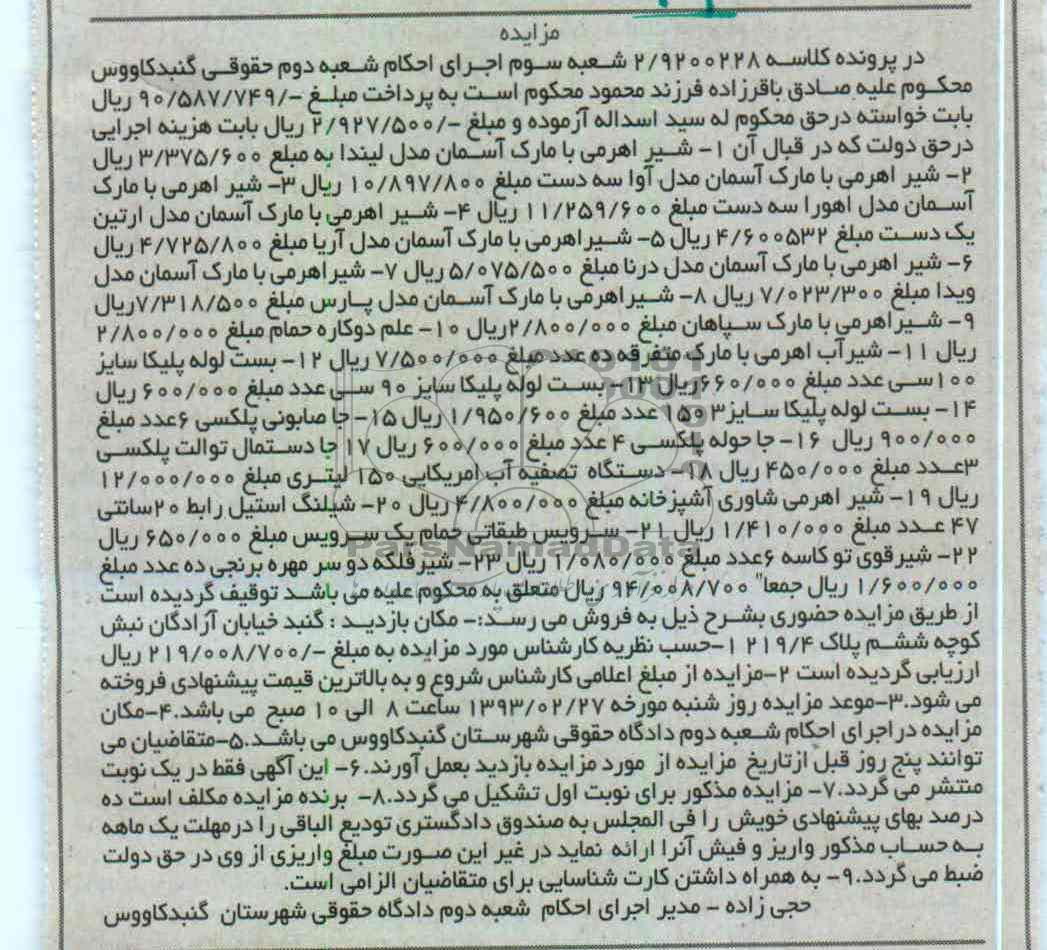 مزایده
در پرونده کلاسه ۲/۹۲۰۰۲۲۸ شعبه سوم اجرای احکام شعبه دوم حقوقی گنبدکاووس
محکوم علیه صادق باقرزاده فرزند محمود محکوم است به پرداخت مبلغ -/۹۰/۵۸۷/۷۴۹ ریال
بابت خواسته درحق محکوم له سید اسداله آزموده و مبلغ -/۲/۹۲۷/۵۰۰ ریال بابت هزینه اجرایی
درحق دولت که در قبال آن ۱- شیر اهرمی با مارک آسمان مدل لیندا به مبلغ ۳/۳۷۵/۶۰۰ ریال
۲- شیر اهرمی با مارک آسمان مدل آوا سه دست مبلغ ۱۰/۸۹۷/۸۰۰ ریال ۳- شیر اهرمی با مارک
آسمان مدل اهورا سه دست مبلغ ۱۱/۲۵۹/۶۰۰ ریال ۴- شیر اهرمی با مارک آسمان مدل ارتین
یک دست مبلغ ۴/۶۰۰۵۳۲ ریال ۵- شیراهرمی با مارک آسمان مدل آریا مبلغ ۴/۷۲۵/۸۰۰ ریال
۶- شیر اهرمی با مارک آسمان مدل درنا مبلغ ۵/۰۷۵/۵۰۰ ریال ۷- شیراهرمی با مارک آسمان مدل
ویدا مبلغ ۷/۰۲۳/۳۰۰ ریال ۸- شیراهرمی با مارک آسمان مدل پارس مبلغ ۷/۳۱۸/۵۰۰ریال
۹- شیراهرمی با مارک سپاهان مبلغ ۲/۸۰۰/۰۰۰ریال ۱۰- علم دوکاره حمام مبلغ ۲/۸۰۰/۰۰۰
ریال ۱۱- شیرآب اهرمی با مارک متفرقه ده عدد مبلغ ۷/۵۰۰/۰۰۰ ریال ۱۲- بست لوله پلیکا سایز
۱۰۰سی عدد مبلغ ۶۶۰/۰۰۰ریال ۱۳- بست لوله پلیکا سایز ۹۰ سی عدد مبلغ ۶۰۰/۰۰۰ ریال
۱۴- بست لوله پلیکا سایز۳ ۱۵۰ عدد مبلغ ۱/۹۵۰/۶۰۰ ریال ۱۵- جا صابونی پلکسی ۶عدد مبلغ
۹۰۰/۰۰۰ ریال ۱۶- جا حوله پلکسی ۴ عدد مبلغ ۶۰۰/۰۰۰ ریال ۱۷ جا دستمال توالت پلکسی
۳عدد مبلغ ۴۵۰/۰۰۰ ریال ۱۸- دستگاه تصفیه آب امریکایی ۱۵۰ لیتری مبلغ ۱۲/۰۰۰/۰۰۰
ریال ۱۹- شیر اهرمی شاوری آشپزخانه مبلغ ۴/۸۰۰/۰۰۰ ریال ۲۰- شیلنگ استیل رابط ۲۰سانتی
۴۷ عدد مبلغ ۱/۴۱۰/۰۰۰ ریال ۲۱- سرویس طبقاتی حمام یک سرویس مبلغ ۶۵۰/۰۰۰ ریال
۲۲- شیرقوی تو کاسه ۶عدد مبلغ ۱/۰۸۰/۰۰۰ ریال ۲۳- شیرفلکه دو سر مهره برنجی ده عدد مبلغ
۱/۶۰۰/۰۰۰ ریال جمعا" ۹۴/۰۰۸/۷۰۰ ریال متعلق به محکوم علیه می باشد توقیف گردیده است
از طریق مزایده حضوری بشرح ذیل به فروش می رسد:- مکان بازدید : گنبد خیابان آزادگان نبش
کوچه ششم پلاک ۲۱۹/۴ ۱-حسب نظریه کارشناس مورد مزایده به مبلغ -/۲۱۹/۰۰۸/۷۰۰ ریال
ارزیابی گردیده است ۲-مزایده از مبلغ اعلامی کارشناس شروع و به بالاترین قیمت پیشنهادی فروخته
می شود.۳-موعد مزایده روز شنبه مورخه ۱۳۹۳/۰۲/۲۷ ساعت ۸ الی ۱۰ صبح می باشد.۴-مکان
مزایده در اجرای احکام شعبه دوم دادگاه حقوقی شهرستان گنبدکاووس می باشد.۵-متقاضیان می
توانند پنج روز قبل ازتاریخ مزایده از مورد مزایده بازدید بعمل آورند.۶- این آگهی فقط در یک نوبت
منتشر می گردد.۷- مزایده مذکور برای نوبت اول تشکیل می گردد.۸- برنده مزایده مکلف است ده
درصد بهای پیشنهادی خویش را فی المجلس به صندوق دادگستری تودیع الباقی را درمهلت یک ماهه
به حساب مذکور واریز و فیش آنرا ارائه نماید در غیر این صورت مبلغ واریزی از وی در حق دولت
ضبط می گردد.۹- به همراه داشتن کارت شناسایی برای متقاضیان الزامی است.
حجی زاده - مدیر اجرای احکام شعبه دوم دادگاه حقوقی شهرستان گنبدکاووس
ParsNamadData